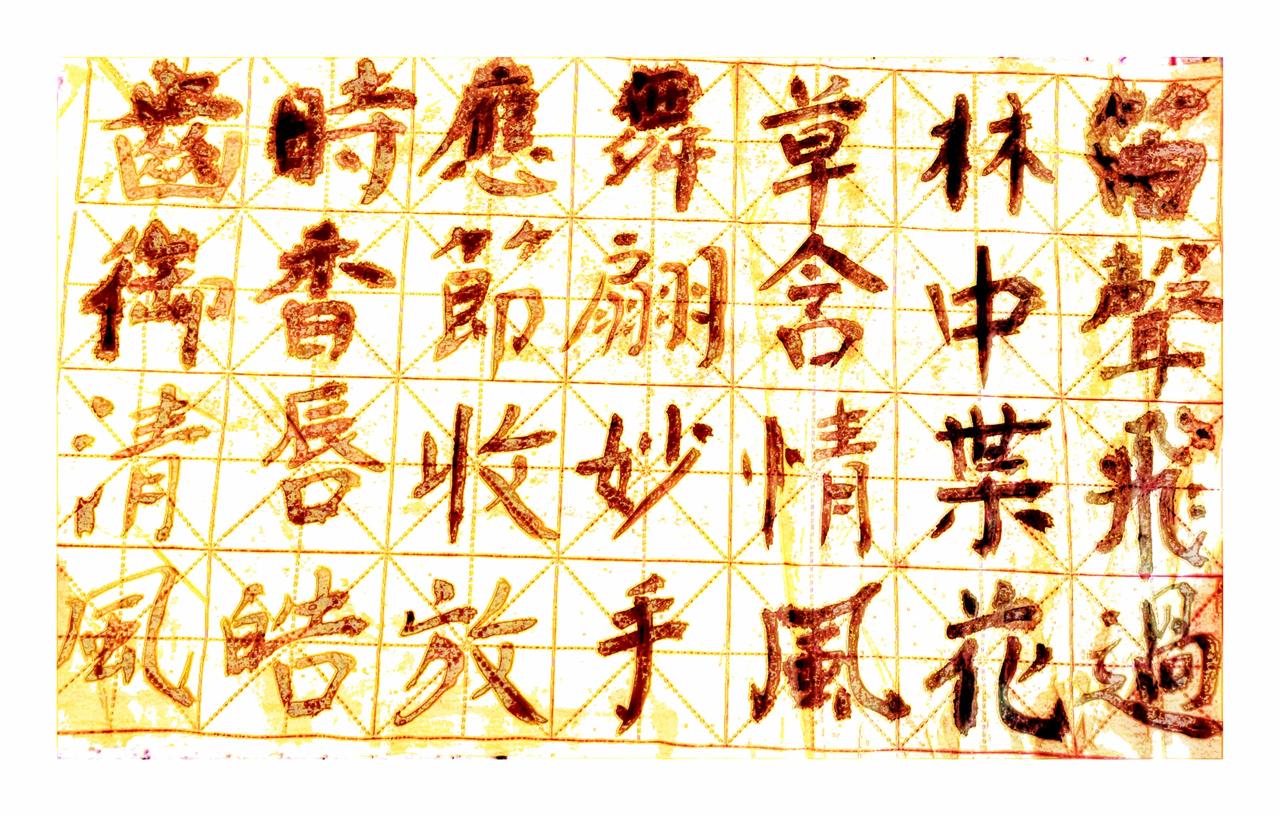 聲飛過
林中葉花
草含情風
舞翩妙手
應節收放
時香唇皓
齒御清風